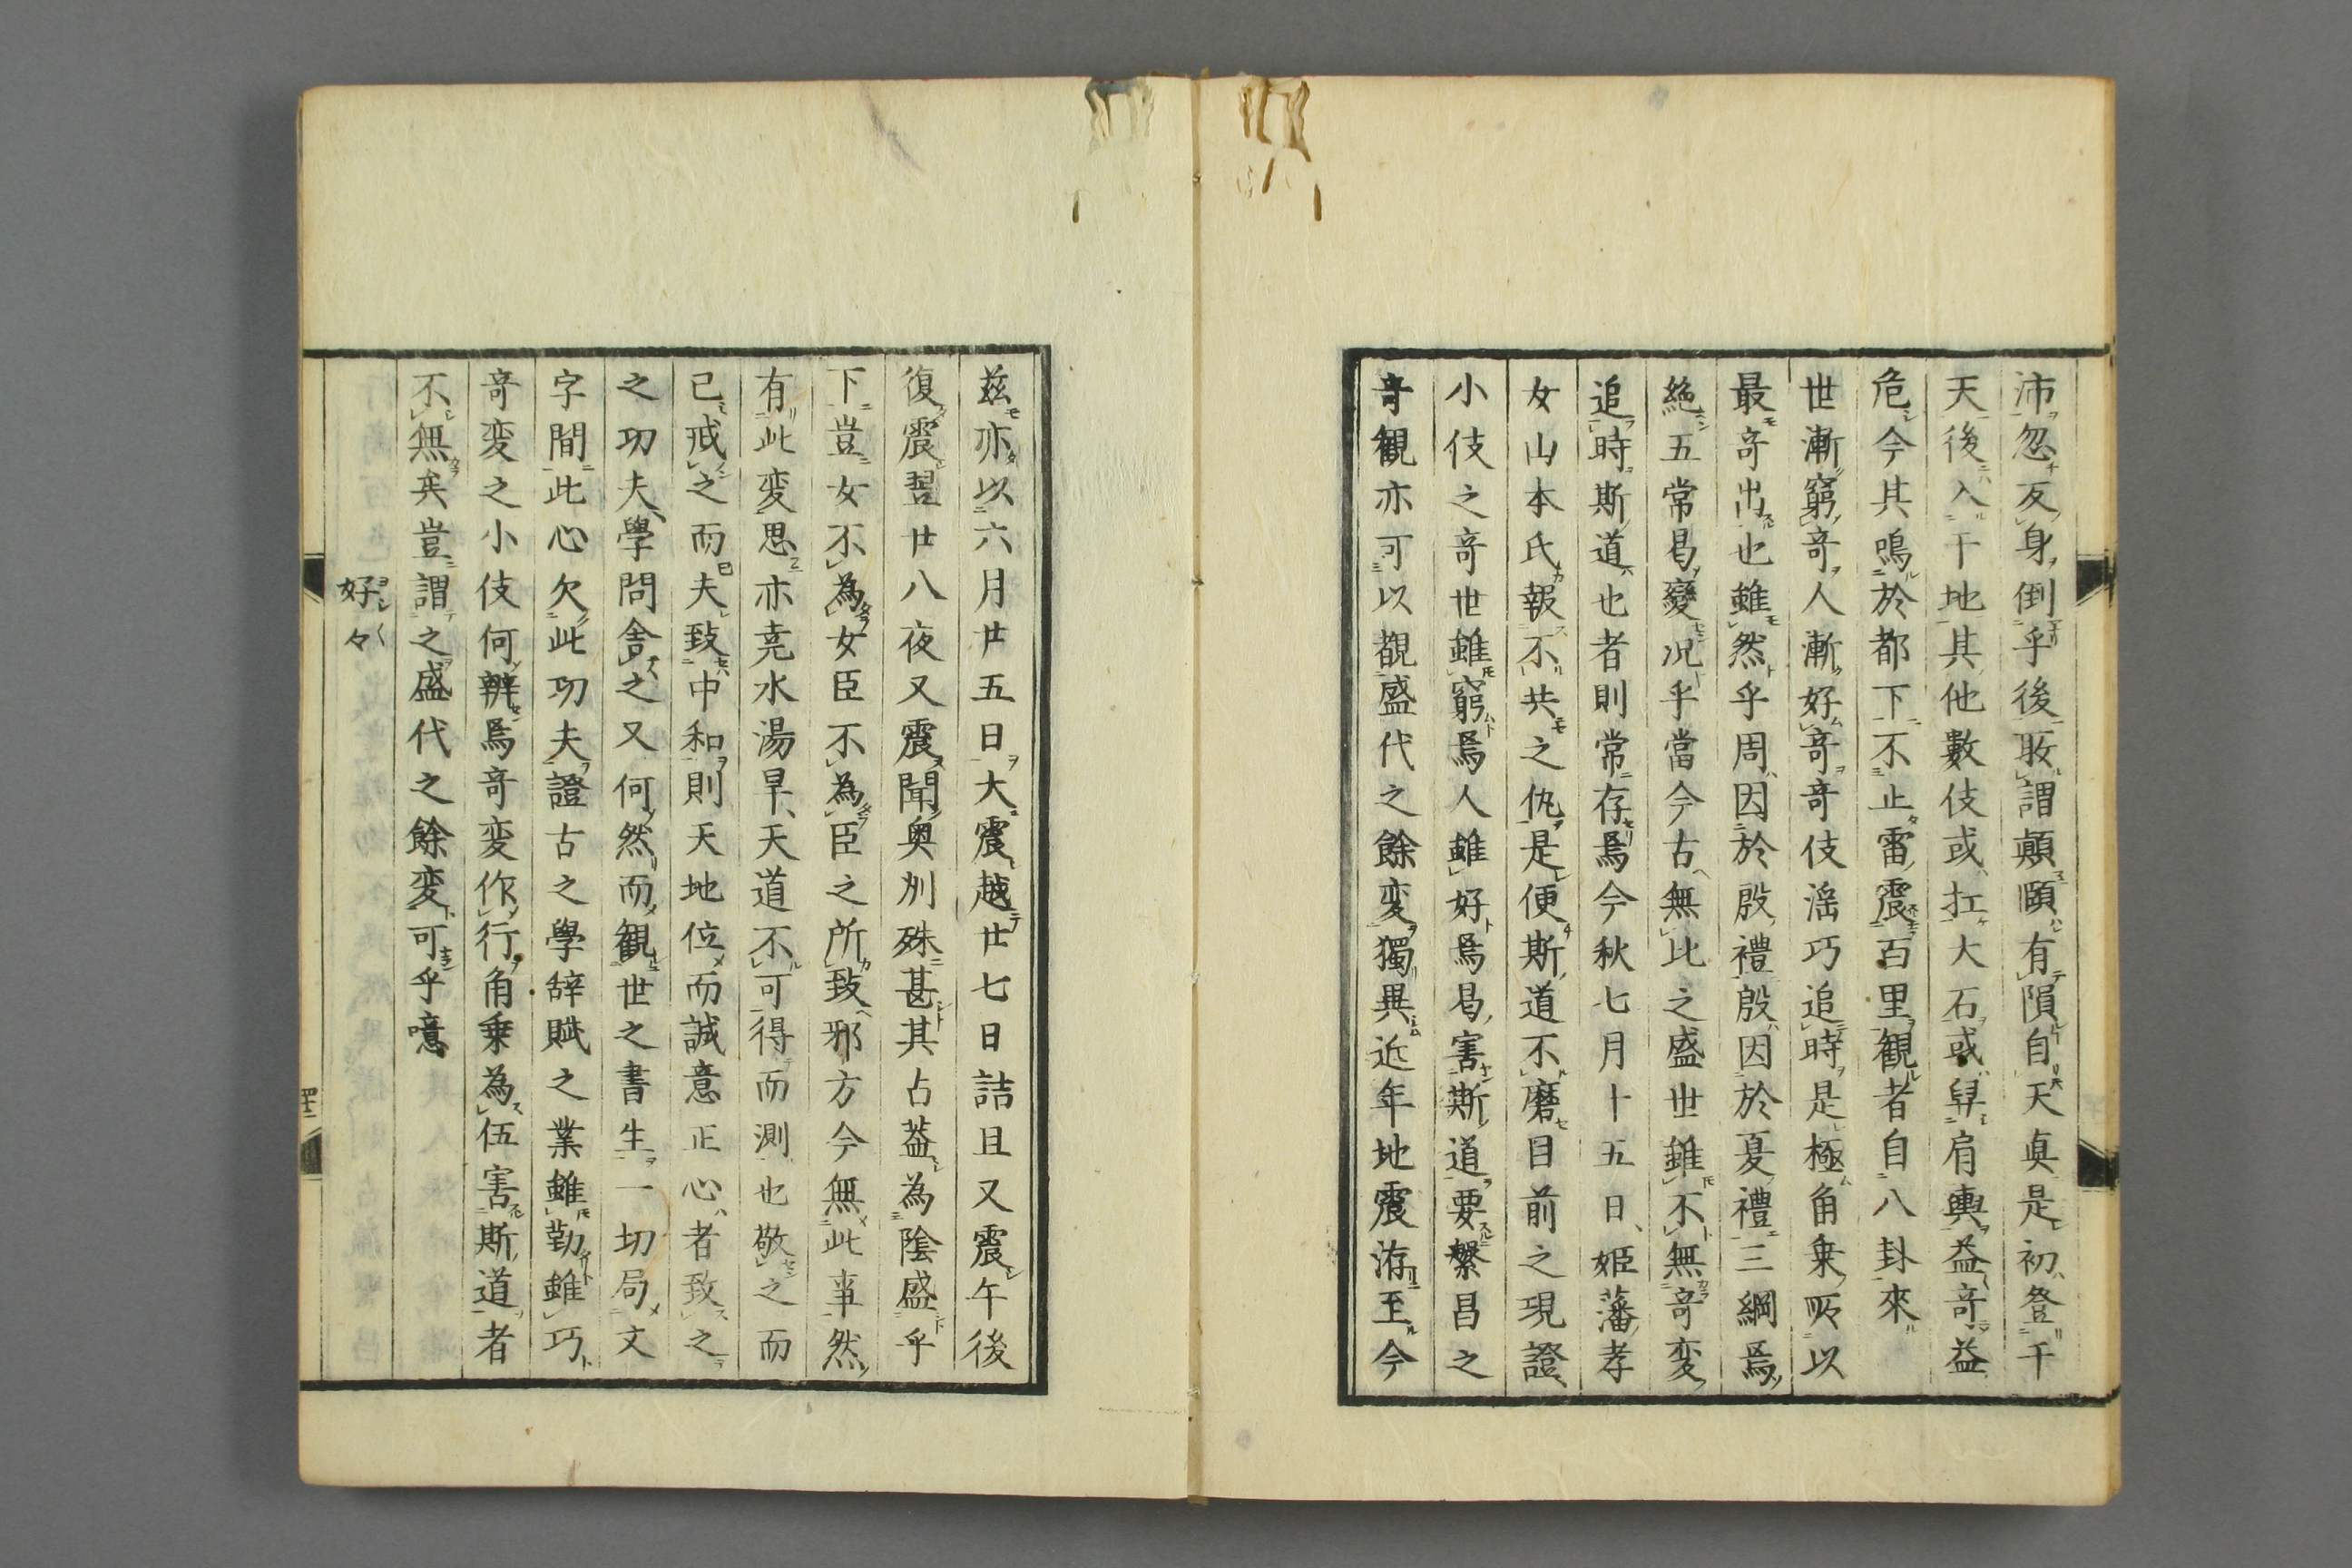 沛忽反身倒乎後敢謂顛頤有隕自天眞是初登于
天後入于地其他數伎或扛大石或舁肩輿益奇益
危今其鳴於都下不止雷震百里觀者自八卦來
世漸窮奇人漸好奇奇伎滛巧追時是極角乗所以
最奇出也雖然乎周因於殷禮殷因於夏禮三綱焉
絶五常曷變况乎當今古無比之盛世雖不無奇変
追時斯道也者則常存焉今秋七月十五日姫藩孝
女山本氏報不共之仇是便斯道不磨目前之現證
小伎之奇世雖窮焉人雖好焉曷害斯道要繫昌之
奇観亦可以觀盛代之餘変獨異近年地震洊至今
茲亦以六月廿五日大震越廿七日詰且又震午後
復震翌廿八夜又震聞奥州殊甚其占葢為陰盛乎
下豈女不為女臣不為臣之所致邪方今無此事然
有此変思亦尭水湯旱天道不可得而測也敬之而
已戒之而夫致中和則天地位而誠意正心者致之
之功夫學問舎之又何然而観世之書生一切局文
字間此心欠此功夫證古之學辞賦之業雖勤雖巧
奇変之小伎何辨焉奇変作行角乗為伍害斯道者
不無矣豈謂之盛代之餘変可乎噫
好々